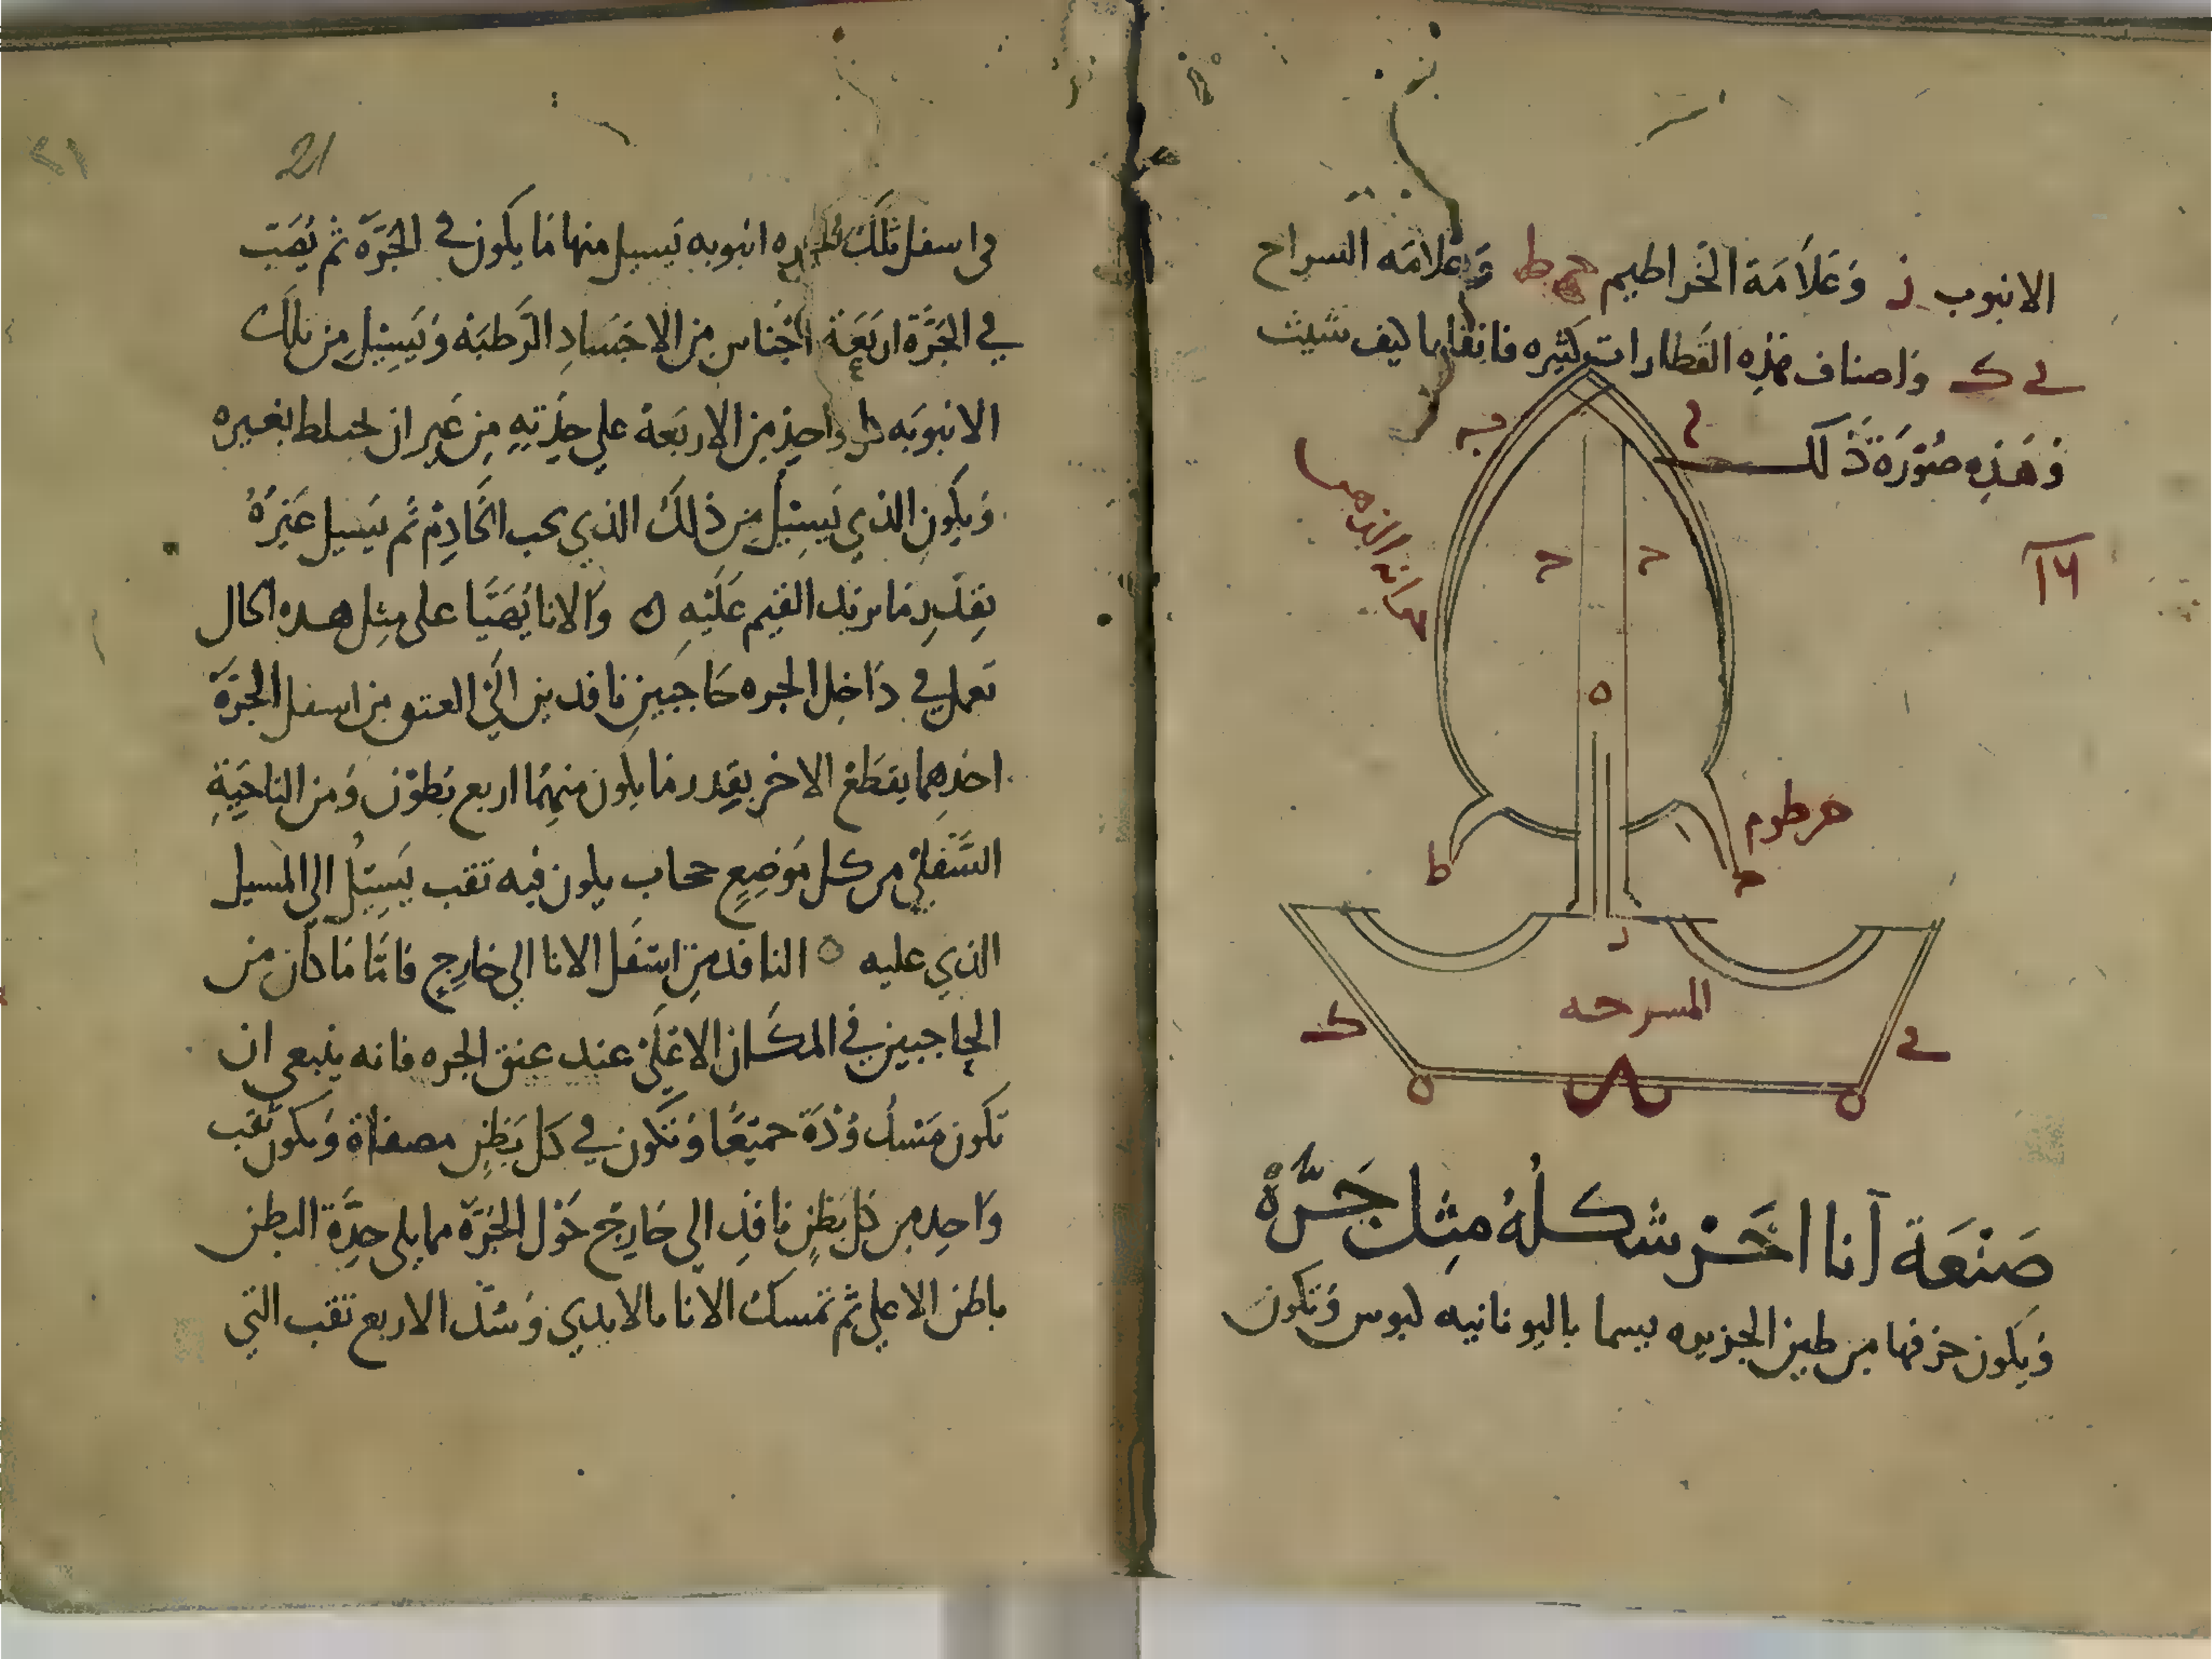 الانبوب ز وَعَلاَمَة الخَراطيم ح ط وَعلامَه السراح
ى ك وَاصناف هَذِه القَطارات كثيره فاتقنها كيف شيت
وَهَذِه صُوْرَة ذَلك
١٦
خزانه الذهن
خرطوم
ح
ط
ه
ز
المسرحه
ك
ى
صَنْعَة آنا اخَرْ شكلُهُ مِثل جَرّة
وَيَكون خزفها من طين الجزيره يسما باليونانيه ليوس وَتكون
21
في اسفل تلك الجره انبوبه يَسيل منها مَا يكون في الجَرَّة ثم يُصَب
في الجَرَّة اربَعَة اجْناس مِن الاجسَادِ الرَطبَه وَيَسِيْل مِن تلكَ
الانبوبَه كل واحِدٍ مِن الاربَعة علي حِدَتِهِ مِن غَير ان يختلط بغيره
وَيكون الذي يَسِيْل مِن ذلكَ الذي يحب الخادِم ثم يَسيل غَيرُهُ
بِقدْرِ مَا يريد القيم عَلَيْهِ ن وَالانا يُهَيَّا على مِثِل هده الحال
تعمل في دَاخِل الجره حَاجبَين نافدين الَي العتق من اسفل الجَرَّة
احَدهِما يقطَعْ الاخر بقِدر مَا يكون منهمَا اربع بُطوْن وَمن الناحَيَةِ
السُّفلي من كل مَوضِعٍ حجاب يكون فيه تقب يَسِيْل الي المسيل
الذي عليه ه النافد مِن اسْفَل الانا الي خارِجٍ فامَّا مَا كان من
الحاجبين في المكَان الاعْلَى عند عنق الجره فانه ينبعي ان
تكون مَسْدُوْدَة جميعًا وَتكون في كل بَطنٍ مصفاة وَيكون تقب
وَاحِد مِن كل بَطنٍ نافِد الي خَارِجْ حَوْل الجَرَّة مما يلي حِدَّة البطن
باطن الاعلي ثم تمسك الانا بالايدي وَسُدّ الاربع تقب التي